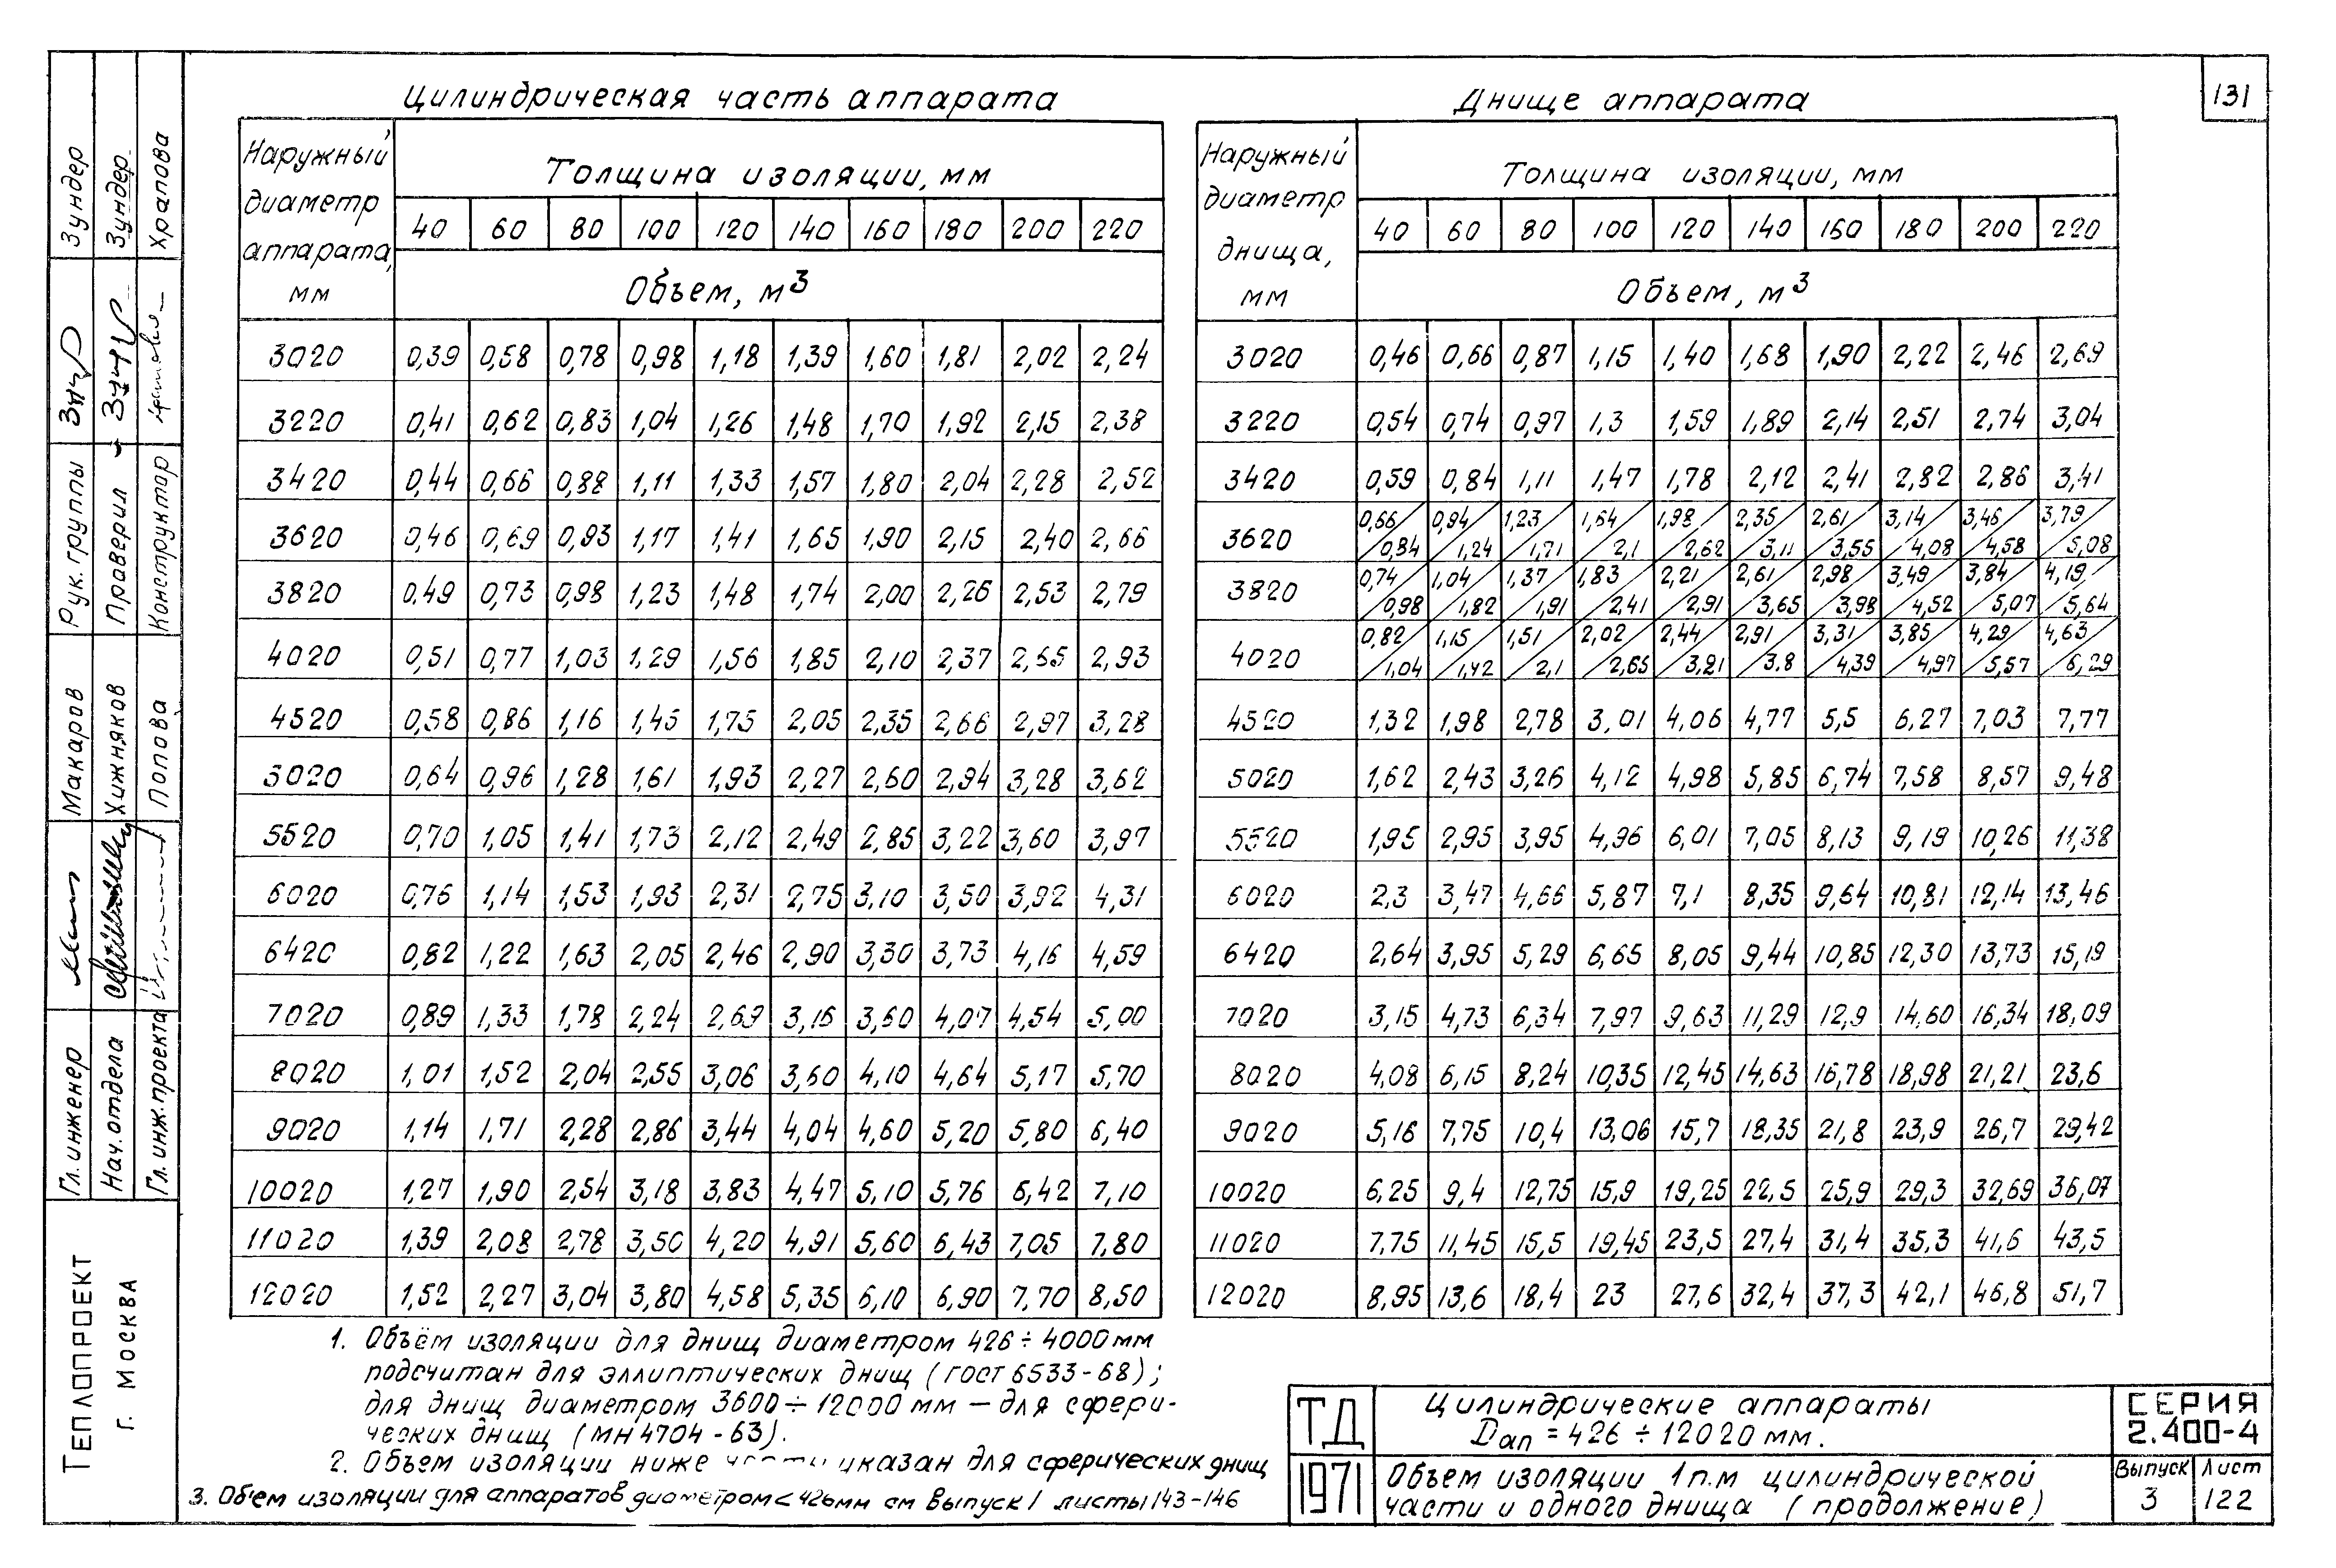 131
Цилиндрическая часть аппарата
Наружный диаметр аппарата, мм
Толщина изоляции, мм
40 60 80 100 120 140 160 180 200 220
Объем, м³
3020 0,39 0,58 0,78 0,98 1,18 1,39 1,60 1,81 2,02 2,24
3220 0,41 0,62 0,83 1,04 1,26 1,48 1,70 1,92 2,15 2,38
3420 0,44 0,66 0,88 1,11 1,33 1,57 1,80 2,04 2,28 2,52
3620 0,46 0,69 0,93 1,17 1,41 1,65 1,90 2,15 2,40 2,66
3820 0,49 0,73 0,98 1,23 1,48 1,74 2,00 2,26 2,53 2,79
4020 0,51 0,77 1,03 1,29 1,56 1,85 2,10 2,37 2,65 2,93
4520 0,58 0,86 1,16 1,45 1,75 2,05 2,35 2,66 2,97 3,28
5020 0,64 0,96 1,28 1,61 1,93 2,27 2,60 2,94 3,28 3,62
5520 0,70 1,05 1,41 1,73 2,12 2,49 2,85 3,22 3,60 3,97
6020 0,76 1,14 1,53 1,93 2,31 2,75 3,10 3,50 3,92 4,31
6420 0,82 1,22 1,63 2,05 2,46 2,90 3,30 3,73 4,16 4,59
7020 0,89 1,33 1,78 2,24 2,69 3,16 3,60 4,07 4,54 5,00
8020 1,01 1,52 2,04 2,55 3,06 3,60 4,10 4,64 5,17 5,70
9020 1,14 1,71 2,28 2,86 3,44 4,04 4,60 5,20 5,80 6,40
10020 1,27 1,90 2,54 3,18 3,83 4,47 5,10 5,76 6,42 7,10
11020 1,39 2,08 2,78 3,50 4,20 4,91 5,60 6,43 7,05 7,80
12020 1,52 2,27 3,04 3,80 4,58 5,35 6,10 6,90 7,70 8,50
Днище аппарата
Наружный диаметр днища, мм
Толщина изоляции, мм
40 60 80 100 120 140 160 180 200 220
Объем, м³
3020 0,46 0,66 0,87 1,15 1,40 1,68 1,90 2,22 2,46 2,69
3220 0,54 0,74 0,97 1,3 1,59 1,89 2,14 2,51 2,74 3,04
3420 0,59 0,84 1,11 1,47 1,78 2,12 2,41 2,82 2,86 3,41
3620 0,66/0,84 0,94/1,24 1,23/1,71 1,64/2,1 1,98/2,62 2,35/3,11 2,61/3,55 3,14/4,08 3,46/4,58 3,79/5,08
3820 0,74/0,98 1,04/1,82 1,37/1,91 1,83/2,41 2,21/2,91 2,61/3,65 2,98/3,98 3,49/4,52 3,84/5,07 4,19/5,64
4020 0,82/1,04 1,15/1,42 1,51/2,1 2,02/2,65 2,44/3,21 2,91/3,8 3,31/4,39 3,85/4,97 4,29/5,57 4,63/6,29
4520 1,32 1,98 2,78 3,01 4,06 4,77 5,5 6,27 7,03 7,77
5020 1,62 2,43 3,26 4,12 4,98 5,85 6,74 7,58 8,57 9,48
5520 1,95 2,95 3,95 4,96 6,01 7,05 8,13 9,19 10,26 11,38
6020 2,3 3,47 4,66 5,87 7,1 8,35 9,64 10,81 12,14 13,46
6420 2,64 3,95 5,29 6,65 8,05 9,44 10,85 12,30 13,73 15,19
7020 3,15 4,73 6,34 7,97 9,63 11,29 12,9 14,60 16,34 18,09
8020 4,08 6,15 8,24 10,35 12,45 14,63 16,78 18,98 21,21 23,6
9020 5,16 7,75 10,4 13,06 15,7 18,35 21,8 23,9 26,7 29,42
10020 6,25 9,4 12,75 15,9 19,25 22,5 25,9 29,3 32,69 36,07
11020 7,75 11,45 15,5 19,45 23,5 27,4 31,4 35,3 41,6 43,5
12020 8,95 13,6 18,4 23 27,6 32,4 37,3 42,1 46,8 51,7
1. Объём изоляции для днищ диаметром 426÷4000 мм
подсчитан для эллиптических днищ (ГОСТ 6533-68);
для днищ диаметром 3600÷12000 мм — для сфери-
ческих днищ (МН 4704-63).
2. Объем изоляции ниже указан для сферических днищ
3. Объем изоляции для аппаратов диаметром < 426мм см выпуск 1 листы 143-146
ТД
1971
Цилиндрические аппараты
Dап = 426 ÷ 12020 мм.
Объем изоляции 1 п.м цилиндрической
части и одного днища (продолжение)
СЕРИЯ
2.400-4
Выпуск 3
Лист 122
Теплопроект
г. Москва
Гл. инженер Макаров
Нач. отдела Хижняков
Гл. инж. проекта Попова
Рук. группы Зундер
Проверил Зундер
Конструктор Храпова